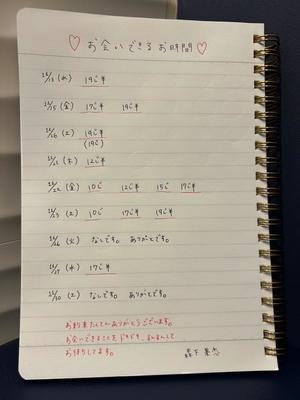 ♡ お会いできるお時間 ♡
12/13 (水) 19じ半
12/15 (金) 17じ半 19じ半
12/16 (土) 19じ半
(19じ)
12/21 (木) 12じ半
12/22 (金) 10じ 12じ半 15じ 17じ半
12/23 (土) 10じ 17じ半 19じ半
12/26 (火) なしです。 ありがとです。
12/27 (水) 17じ半
12/30 (土) なしです。 ありがとです。
お約束たくさんありがとうございます。
お会いできることを ドキドキ、
お待ちしてます。
森下